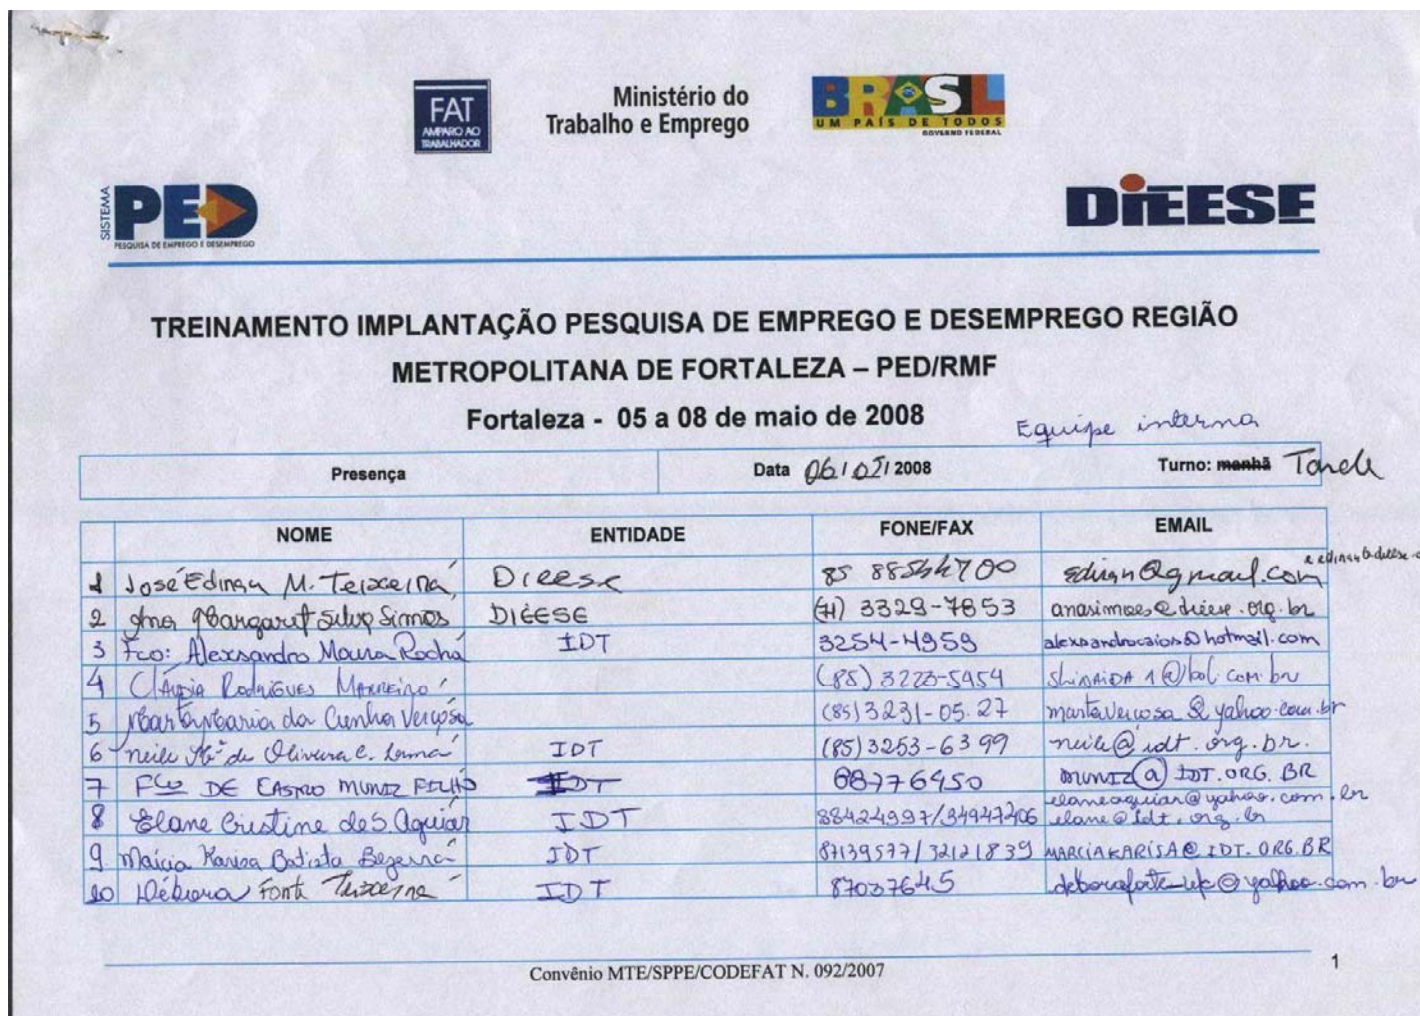 FAT
AMPARO AO
TRABALHADOR
Ministério do
Trabalho e Emprego
BRASIL
UM PAÍS DE TODOS
GOVERNO FEDERAL
SISTEMA
PED
PESQUISA DE EMPREGO E DESEMPREGO
DIEESE
TREINAMENTO IMPLANTAÇÃO PESQUISA DE EMPREGO E DESEMPREGO REGIÃO
METROPOLITANA DE FORTALEZA – PED/RMF
Fortaleza - 05 a 08 de maio de 2008
Equipe interna
Presença Data 06/05/2008 Turno: manhã Tarde
NOME ENTIDADE FONE/FAX EMAIL
1 José Edinan M. Teixeira Dieese 85
2 Ana Margaret Silva Simões DIEESE (71) 3329-7853 anasimoes@dieese.org.br
3 Fco: Alexsandro Moura Rocha IDT 3254-4959 alexsandrocaios@hotmail.com
4 Cláudia Rodrigues (85) 3223-5454
5 Marta Maria da Cunha Verçosa (85) 3231-05.27 martavercosa@yahoo.com.br
6 Neile Mª de Oliveira C. IDT (85) 3253-6399 neile@idt.org.br.
7 Fco DE CASTRO MUNIZ FILHO IDT 88776450 MUNIZ@IDT.ORG.BR
8 Elane Cristine de S. Aguiar IDT 88424997/34947206 elaneaguiar@yahoo.com.br
elane@idt.org.br
9 Márcia Karisa Batista Bezerra IDT 87139577/32121839 MARCIAKARISA@IDT.ORG.BR
10 Débora Fonte Teixeira IDT 87037645
Convênio MTE/SPPE/CODEFAT N. 092/2007
1